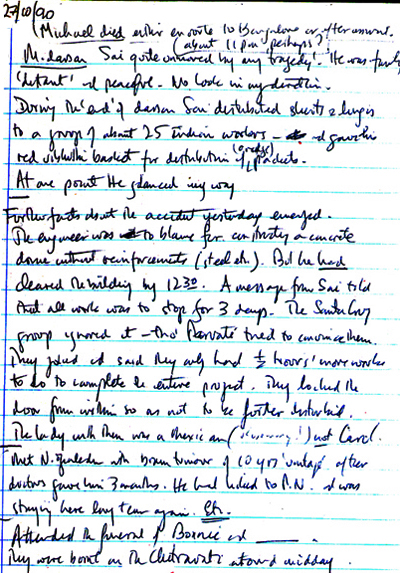 27/10/90
(Michael died either en route to Bangalore or after arrival.
(about 11 pm perhaps?)
M. darshan Sai quite unmoved by any 'tragedy'. He was fairly
'distant' & peaceful. No look in my direction.
During the 'end' of darshan Sai distributed shirts & lungis
to a group of about 25 Indian workers – & gave the
red vibhuthi basket for distribution of packets.
At one point He glanced my way
Further facts about the accident yesterday emerged.
The engineer was to blame for constructing a concrete
dome without reinforcements (steel etc.). But he had
cleared the building by 12 30. A message from Sai told
that all work was to stop for 3 days. The Santa Cruz
group ignored it – tho' tried to convince them.
They joked & said they only had ½ hours' more work
to do to complete the entire project. They locked the
door from within so as not to be further disturbed.
The lady with them was a Mexican not Carol.
Met N. with brain tumour of 10 yrs' after
doctors gave him 3 months. He had to P.N. & was
staying here long term again. Etc.
Attended the funeral of Bonnie and
They were burnt on the Chitravati around midday.